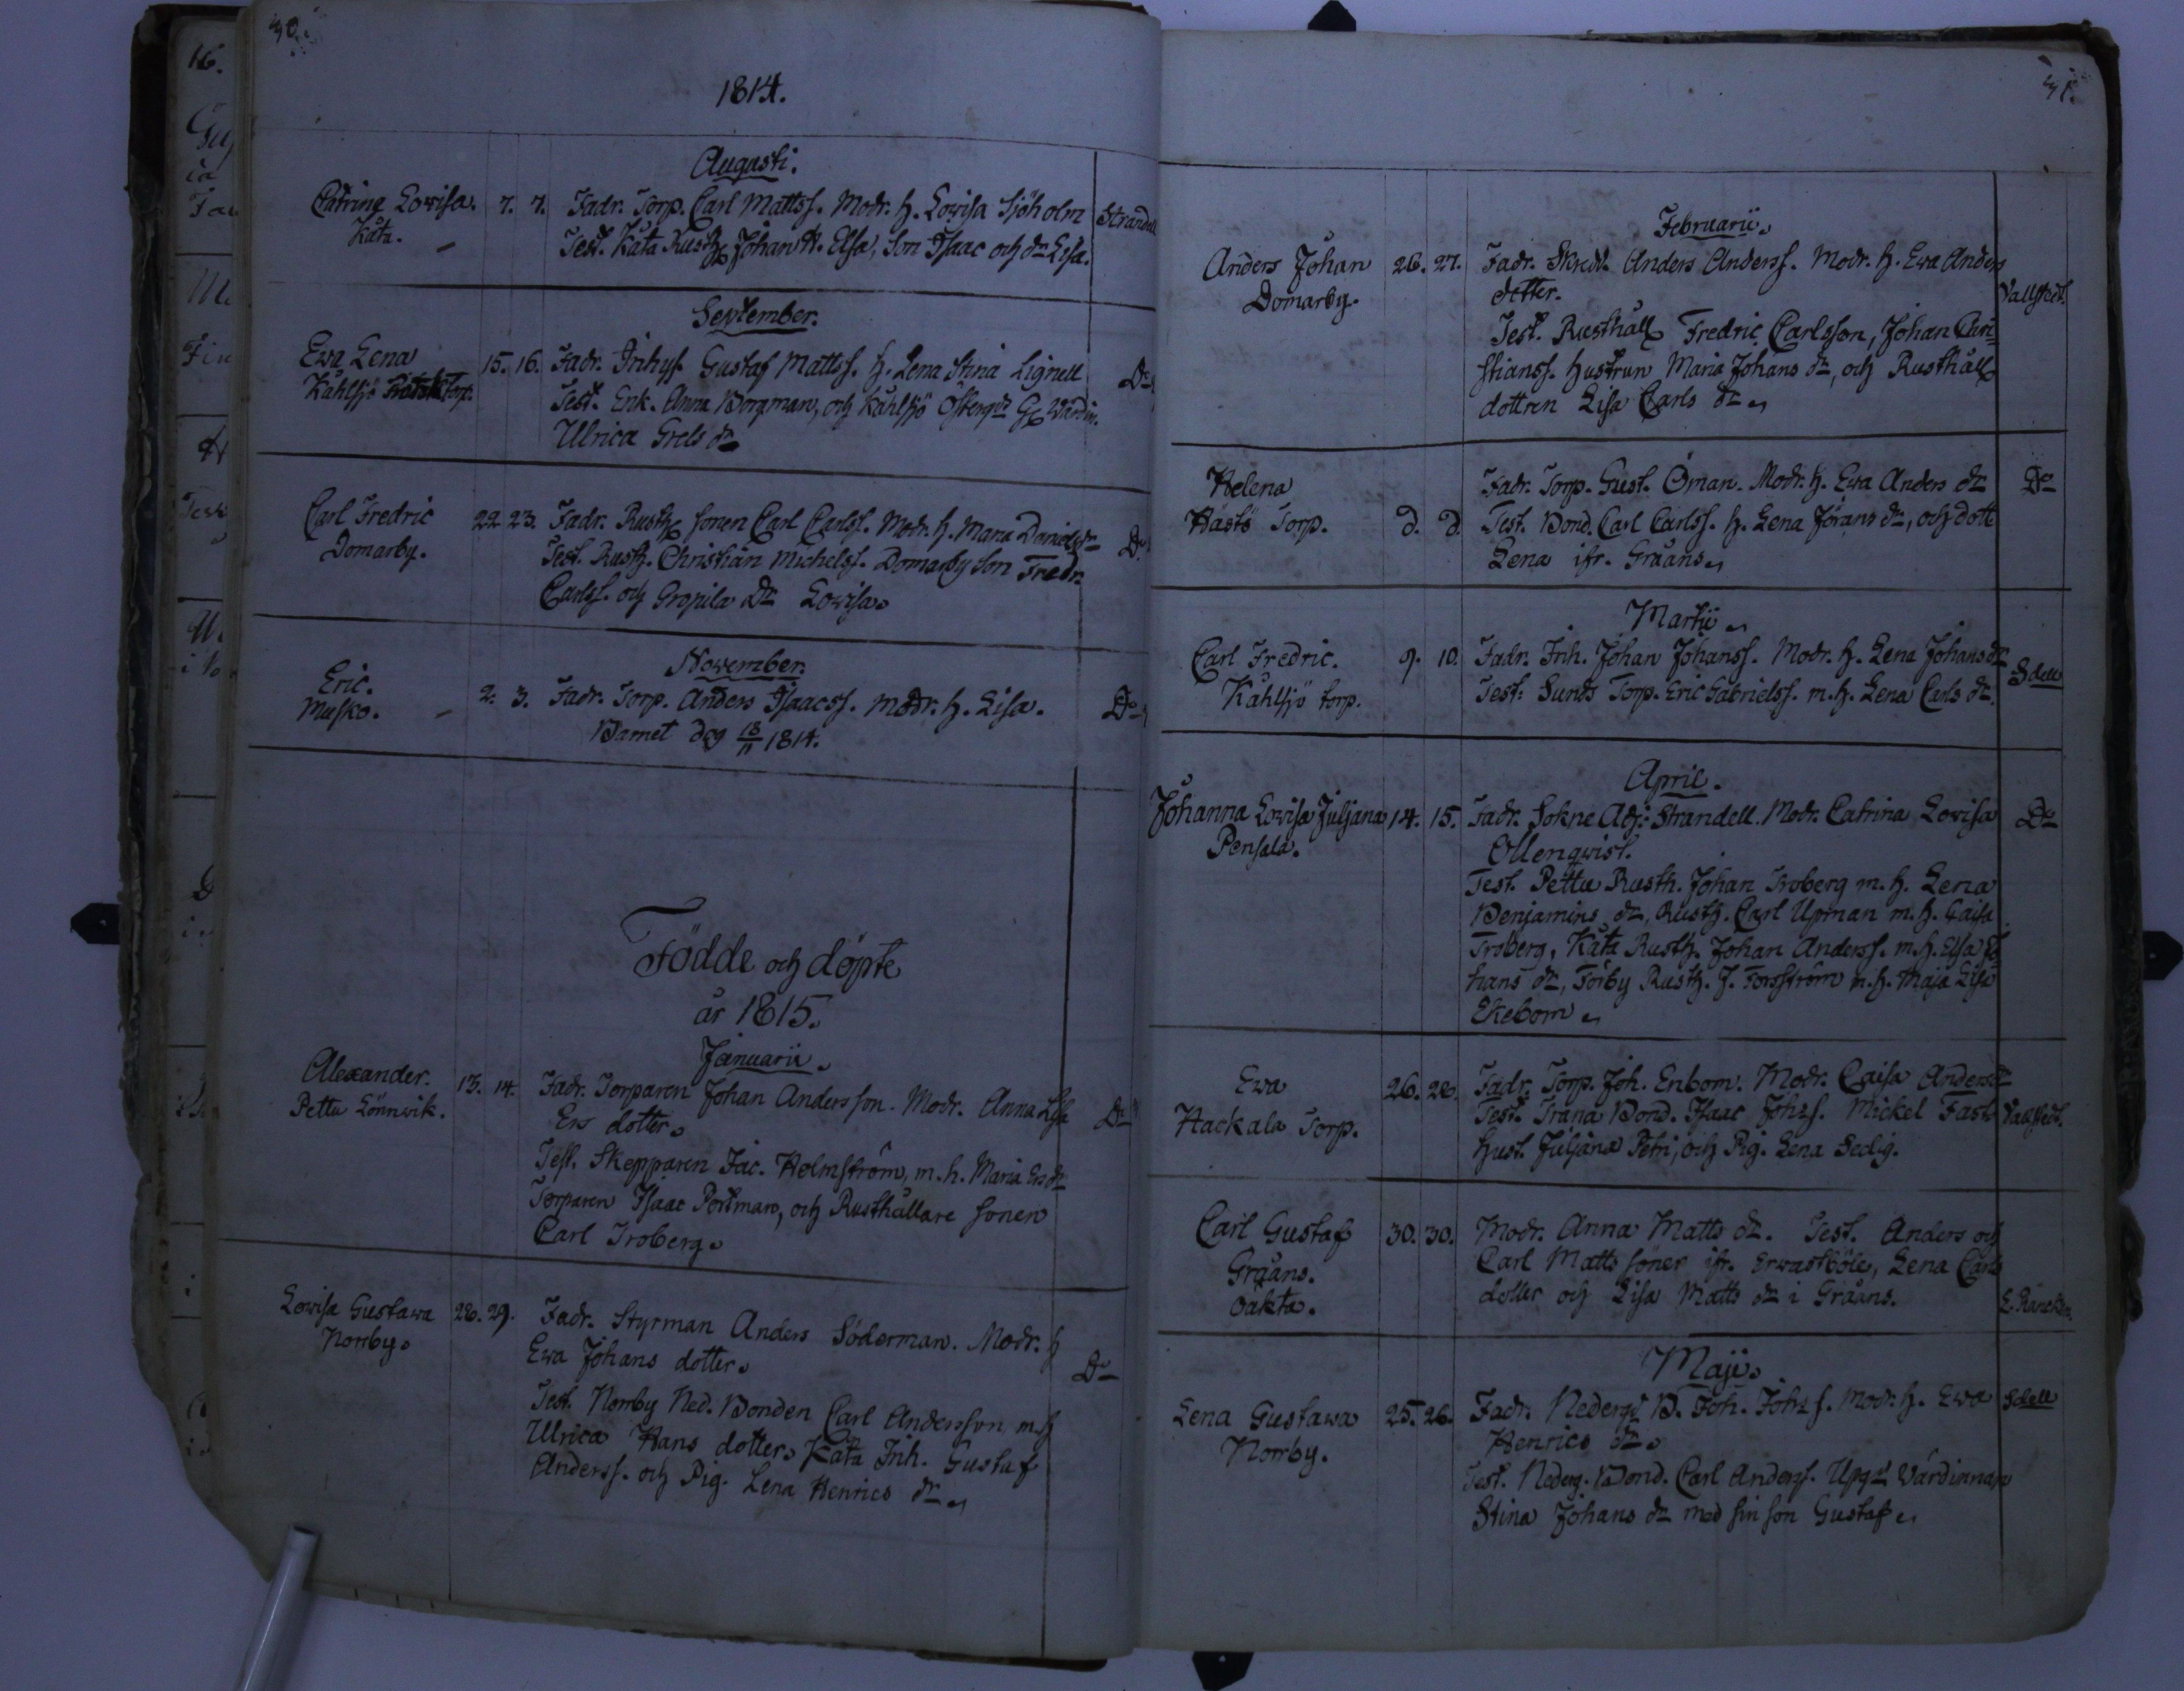 30.
1814.
Augusti.
Catrina Lovisa. 7. 7. Fadr. Torp. Carl Mattss. Modr. h. Lovisa Sjöholm Strandell
Kåta. Test. Kåta Rusth. Johan A. Elsa, Son Isaac och dr Lisa.
September.
Ewa Lena 15. 16. Fadr. Inhys. Gustaf Mattss. h. Lena Stina Lignell Do
Kåhlsjö Torp. Test. Enk. Anna Borgman, och Kåhlsjö Östergds Wärdin.
Ulrica Grels dr
Carl Fredric 22. 23. Fadr. Rusth. sonen Carl Carlss. Modr. h. Maria Daniels dr Do
Domarby. Test. Rusth. Christian Michelss. Domarby Son Fredr.
Carlss. och Gropila Dr Lovisa.
November.
Eric. 2. 3. Fadr. Torp. Anders Isaacss. Modr. h. Lisa. Do
Musko. Barnet dog 13/11 1814.
Födde och döpte
år 1815.
Januarii.
Alexander. 13. 14. Fadr. Torparen Johan Andersson. Modr. Anna Lisa Do
Pettu Lönnwik. Ers dotter.
Test. Skepparen Jac. Holmström, m. h. Maria Ers dr
Torparen Isaac Portman, och Rusthållare sonen
Carl Troberg.
Lovisa Gustava 28. 29. Fadr. Styrman Anders Söderman. Modr. h
Norrby. Ewa Johans dotter. Do
Test. Norrby Ned. Bonden Carl Andersson m. h
Ulrica Hans dotter. Kåta Inh. Gustaf
Anderss. och Pig. Lena Henrics dr
31.
Februarii.
Anders Johan 26. 27. Fadr. Skredd. Anders Anderss. Modr. h. Ewa Anders
Domarby. dotter. Vallstedt.
Test. Rusthåll. Fredric Carlsson, Johan Chri-
stianss. hustrun Maria Johans dr, och Rusthåll
dottren Lisa Carls dr
Helena Fadr. Torp. Gust. Öman. Modr. h. Ewa Anders dr Do
Hästö Torp. d. d. Test. Bond. Carl Carlss. h. Lena Jörans dr, och dott
Lena ifr. Gråäns
Martii
Carl Fredric. 9. 10. Fadr. Inh. Johan Johanss. Modr. h. Lena Johans dr Sdell
Kåhlsjö torp. Test: Sunds Torp. Eric Gabrielss. m. h. Lena Carls dr.
April.
Johanna Lovisa Juljana 14. 15. Fadr. Sokne Adj: Strandell. Modr. Catrina Lovisa Do
Pensala. Ollenqvist.
Test. Pettu Rusth. Johan Troberg m. h. Lena
Benjamins dr, Rusth. Carl Upman m. h. Caisa
Troberg, Kåta Rusth. Johan Anderss. m. h. Elsa Jo
hans dr, Torby Rusth. J. Forsström m. h. Maja Lisa
Ekebom
Ewa 26. 28. Fadr. Torp. Joh. Enbom. Modr. Caisa Anders dr
Hackala Torp. Test. Trana Bond. Isaac Johss. Mickel Fast Vallstedt.
hust. Juljana Petri, och Pig. Lena Sedig.
Carl Gustaf 30. 30. Modr. Anna Matts dr. Test. Anders och
Gråäns. Carl Matts söner ifr. Erwastböle, Lena Carls
oäkta. dotter och Lisa Matts dr i Gråäns. E. Rancken.
Maji.
Lena Gustava 25. 26. Fadr. Nedergds B. Joh. Johss. Modr. h. Ewa Sdell
Norrby. Henrics dr.
Test. Nederg. Bond. Carl Anderss. Upgds Värdinnan
Stina Johans dr med sin son Gustaf